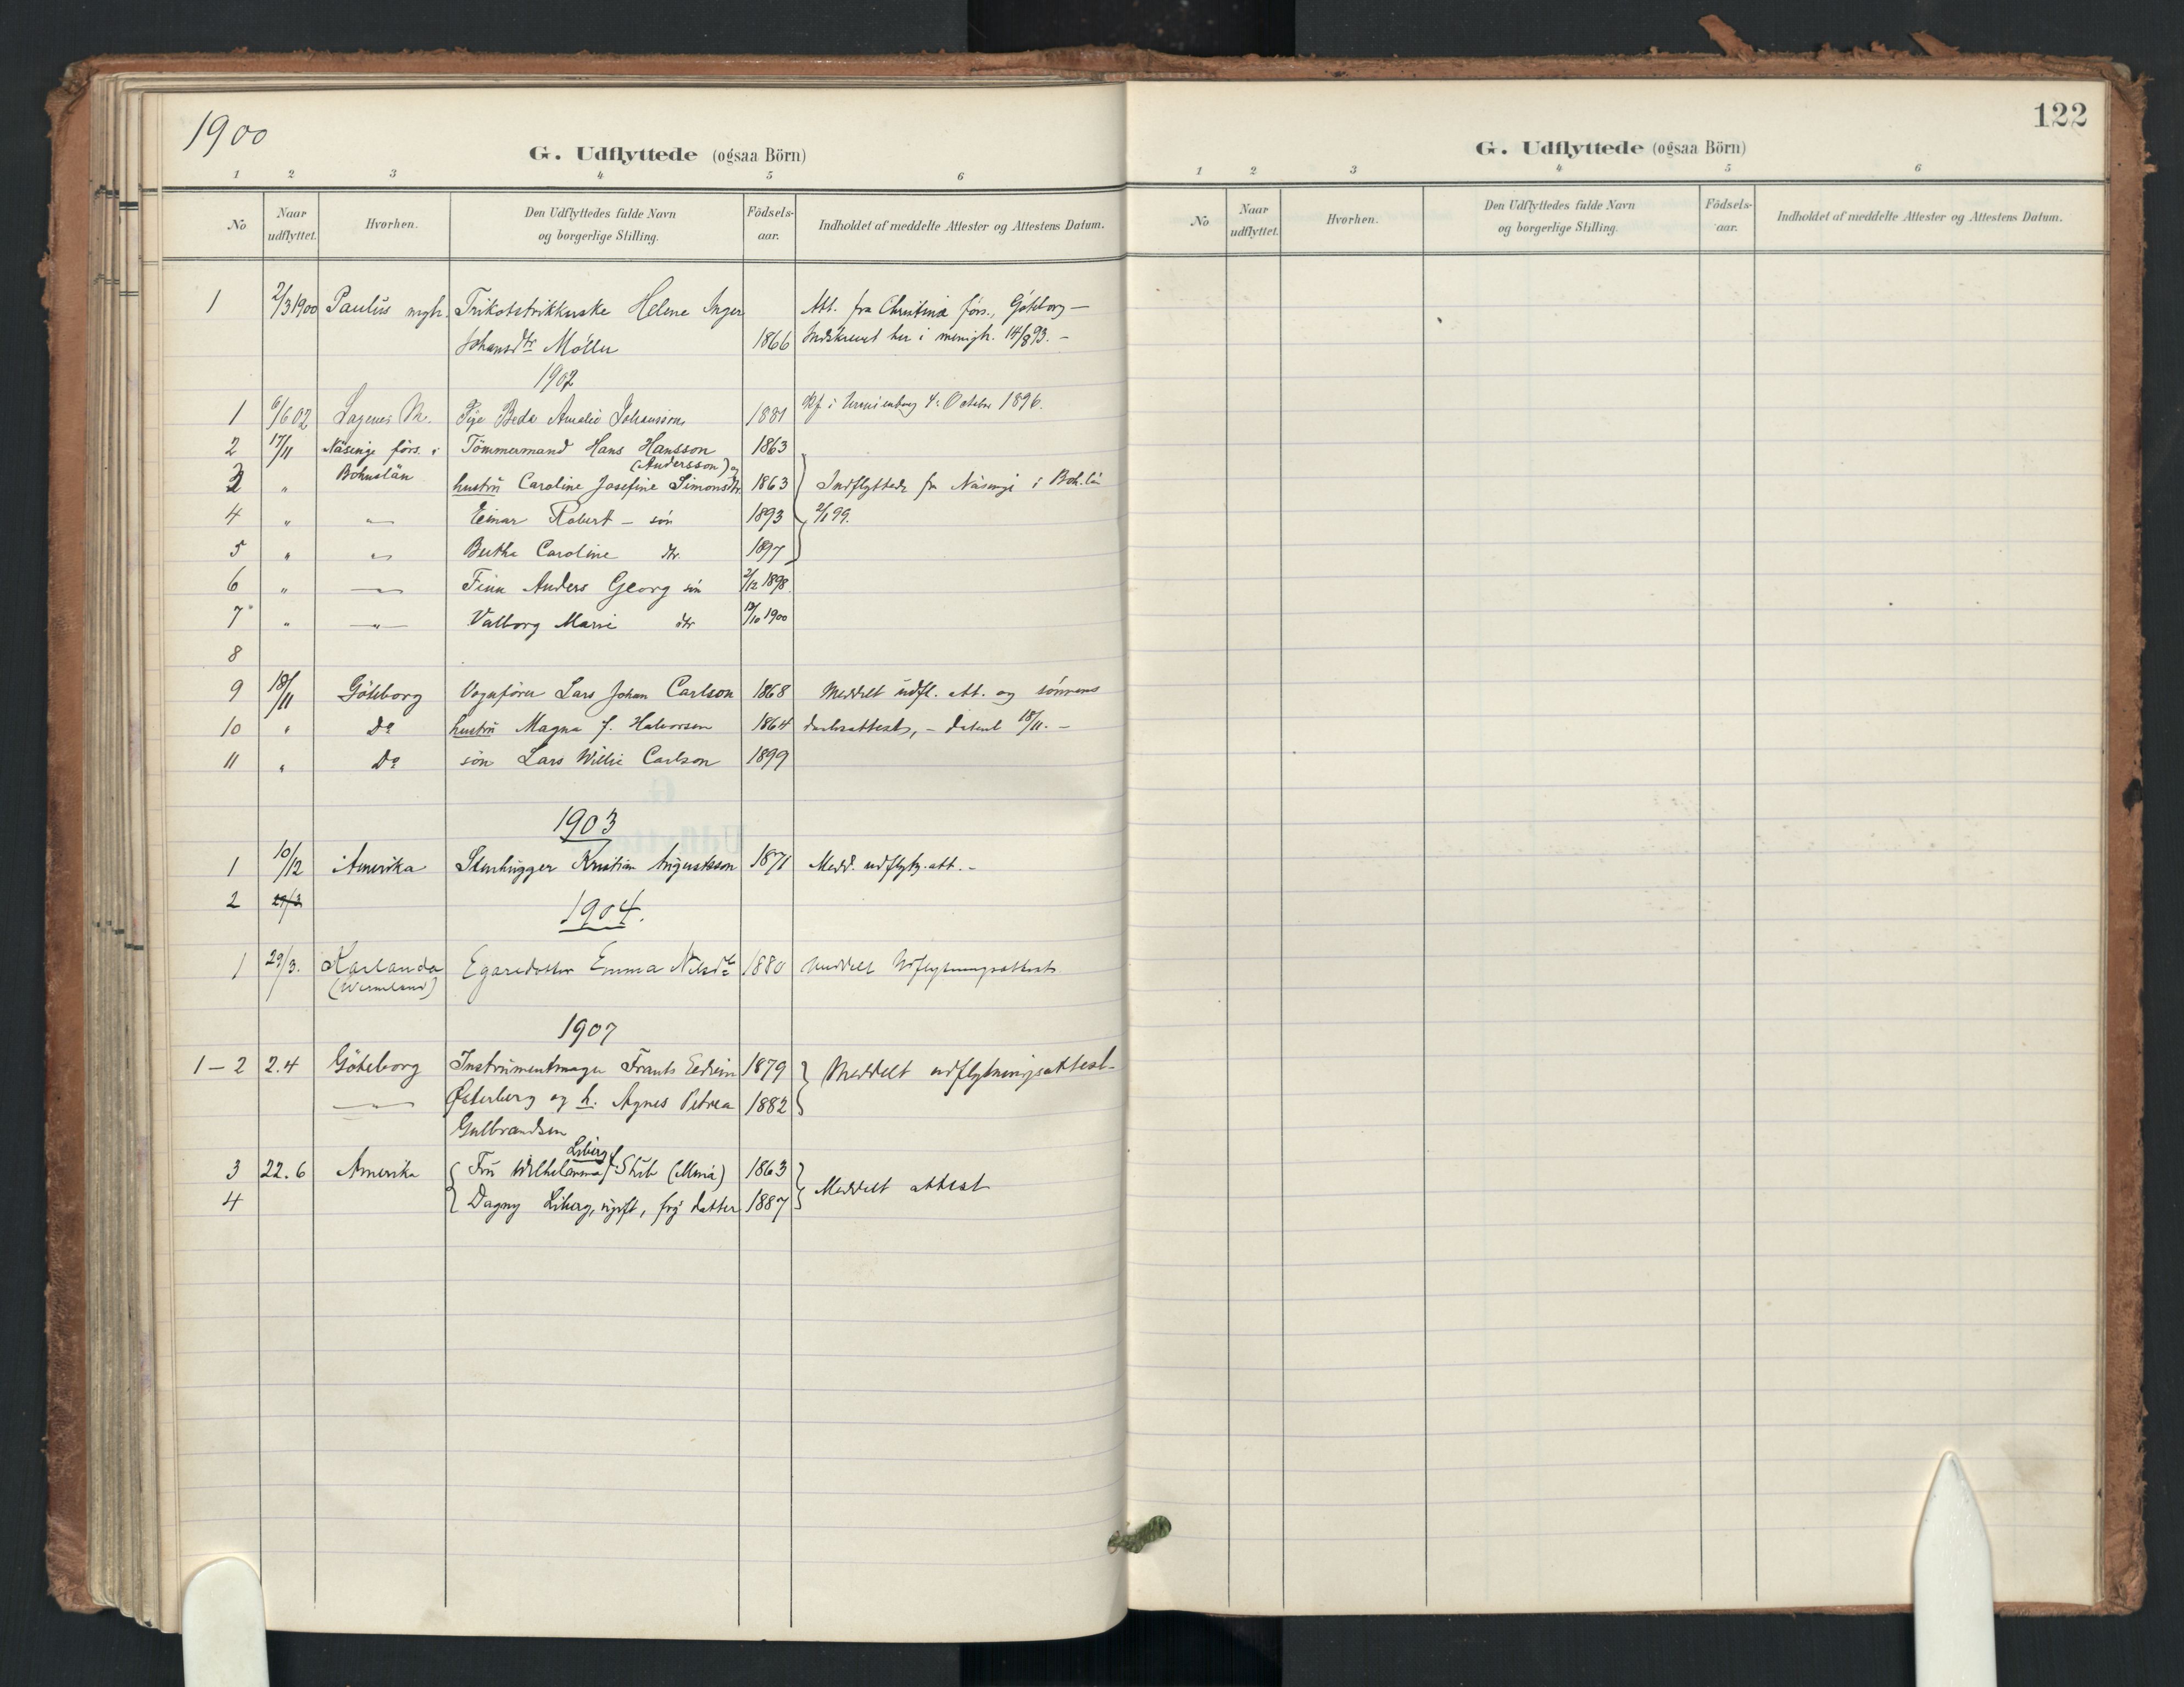 1900
G. Udflyttede (ogsaa Börn)
1 2 3 4 5 6
No Naar udflyttet. Hvorhen. Den Udflyttedes fulde Navn og borgerlige Stilling. Födsels-aar. Indholdet af meddelte Attester og Attestens Datum.
1 2/3 1900 Paulus mgh. Trikotstrikkerske Helene Inger Att. fra Christina förs., Göteborg —
Johansdtr Möller 1866 Indskrevet her i menigh. 14/8 93. —
1902
1 6/6 02 M. Pige Beda Amalie Johansson 1881 Kf. i Uranienborg 4. October 1896.
2 17/11 Näsinge förs. i Tömmermand Hans Hansson 1863
(Andersson) og
3 " Bohuslän hustru Caroline Josefine Simonsdtr 1863 Indflyttede fra Näsinge i Boh.län
4 " " Einar Robert — sön 1893 2/1 99.
5 " " Bertha Caroline dtr. 1897
6 " " Finn Anders Georg sön 2/12 1898.
7 " " Valborg Marie dtr /10 1900
8
9 18/11 Göteborg Vognförer Lars Johan Carlson 1868 Meddelt udfl. att. og sönnens
10 " Do hustru Magna J. Halvorsen 1864 daabsattest, — dateret 18/11. —
11 " Do sön Lars Willie Carlson 1899
1903
1 10/12 Amerika Stenhugger Kristian Augustsson 1871 Medd. udflytn.att. —
2 29/3
1904.
1 29/3. Karlanda Egaredotter Emma Nilsdtr 1880 Meddelt Udflytningsattest
(Wermland)
1907
1 — 2 2.4 Göteborg Instrumentmager Frants Edvin 1879 Meddelt udflytningsattest
" Österberg og h. Agnes Petrea 1882
Gulbrandsen
Liberg
3 22.6 Amerika Fru Wilhelmina f. (Mina) 1863
Meddelt attest
4 Dagny Liberg, ugift, datter 1887
122
G. Udflyttede (ogsaa Börn)
1 2 3 4 5 6
No Naar udflyttet. Hvorhen. Den Udflyttedes fulde Navn og borgerlige Stilling. Födsels-aar. Indholdet af meddelte Attester og Attestens Datum.